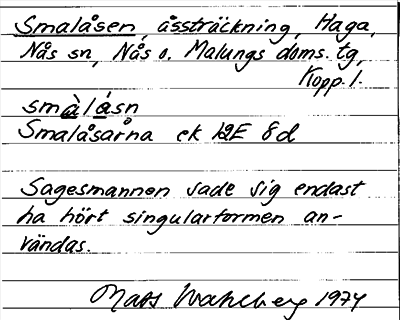 Smalåsen, åssträckning, Haga,
Nås sn, Nås o. Malungs doms. tg,
Kopp. l.
smàlásn
Smalåsarna ek 12E 8d
Sagesmannen sade sig endast
ha hört singularformen an-
vändas.
Mats Wahlberg 1974